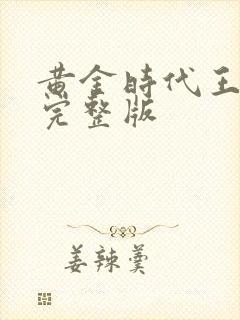 黄金時代王
完整版
姜辣羹